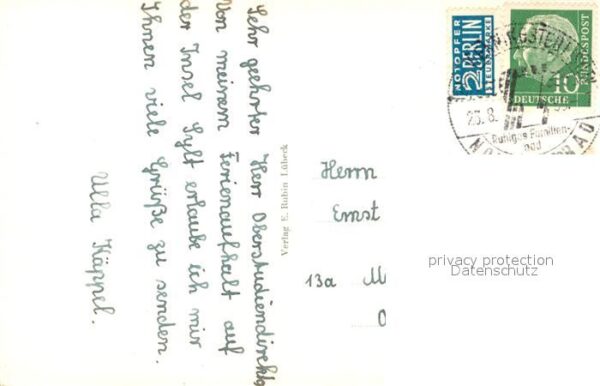 Sehr geehrter Herr Oberstudiendirektor
Von meinem Ferienaufhalt auf
der Insel Sylt erlaube ich mir
Ihnen viele Grüße zu senden.
Ulla Käppel.
Verlag E. Rubin Lübeck
Herrn
Ernst
13a M
O
NOTOPFER
2 BERLIN
STEUERMARKE
BUNDESPOST
10
DEUTSCHE
23.8.
Ruhiges Familien-
bad
privacy protection
Datenschutz